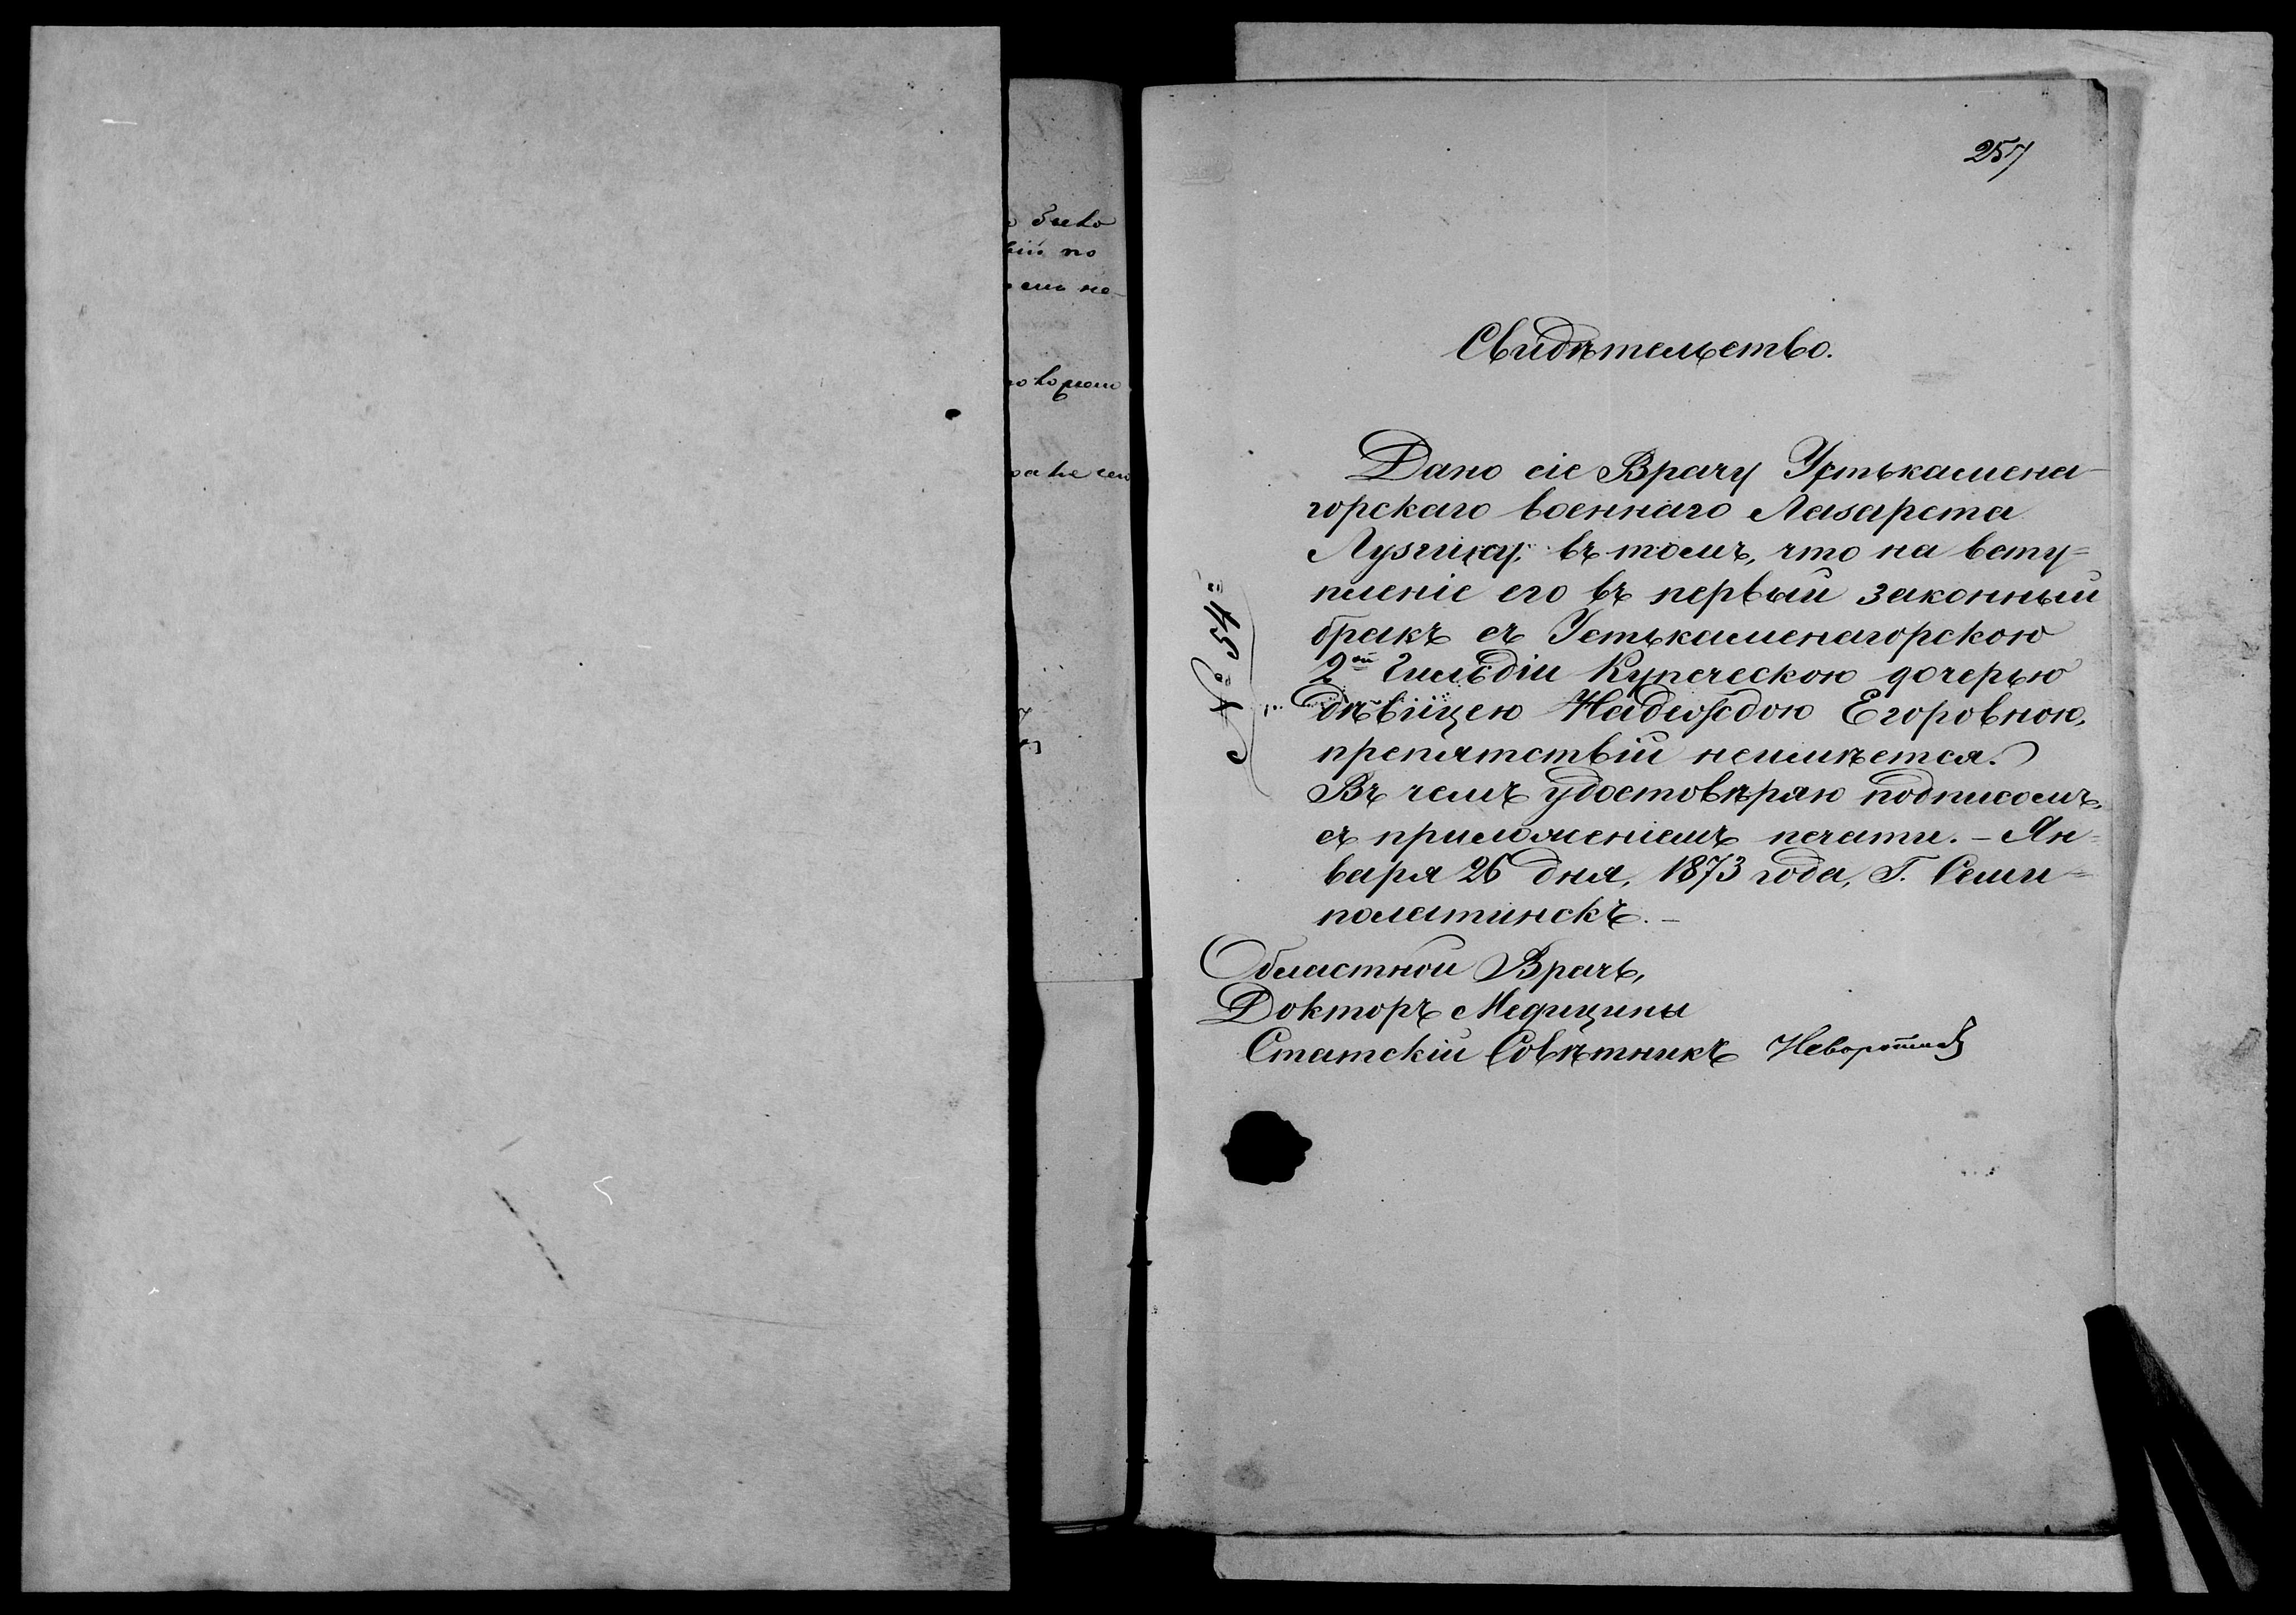 257
Свидѣтельство.
Дано сіе Врачу Устькамена-
горскаго военнаго Лазарета
въ томъ, что на всту=
пленіе его въ первый законный
бракъ съ Устькаменагорскою
2ой Гильдіи Купеческою дочерью
дѣвицею Надеждою Егоровною,
препятствій неимѣется.
Въ чемъ удостовѣряю подписомъ,
съ приложеніемъ печати. – Ян=
варя 26 дня, 1873 года, Г. Семи=
полатинскъ. –
Областной Врачъ,
Докторъ Медицины
Статскій Совѣтникъ
№ 45